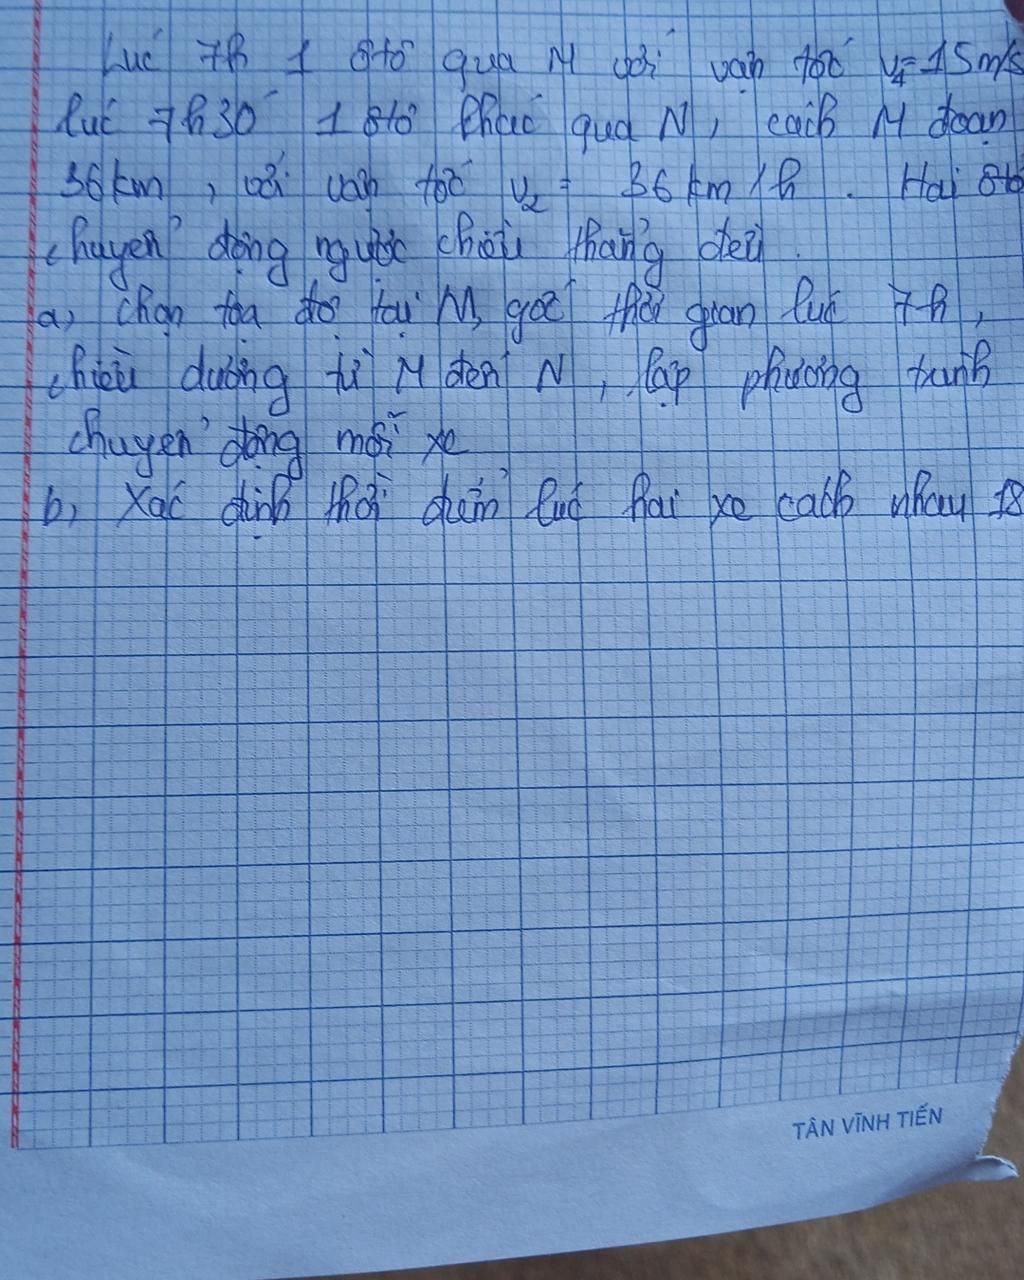 Lúc 7h 1 ôtô qua M với vận tốc v₁=15m/s
lúc 7h30 1 ôtô khác qua N, cách M đoạn
36km, với vận tốc v₂ = 36km/h. Hai ôtô
chuyển động ngược chiều thẳng đều.
a, chọn tọa độ tại M, gốc thời gian lúc 7h,
chiều dương từ M đến N, lập phương trình
chuyển động mỗi xe
b, Xác định thời điểm lúc hai xe cách nhau 18
TÂN VĨNH TIẾN